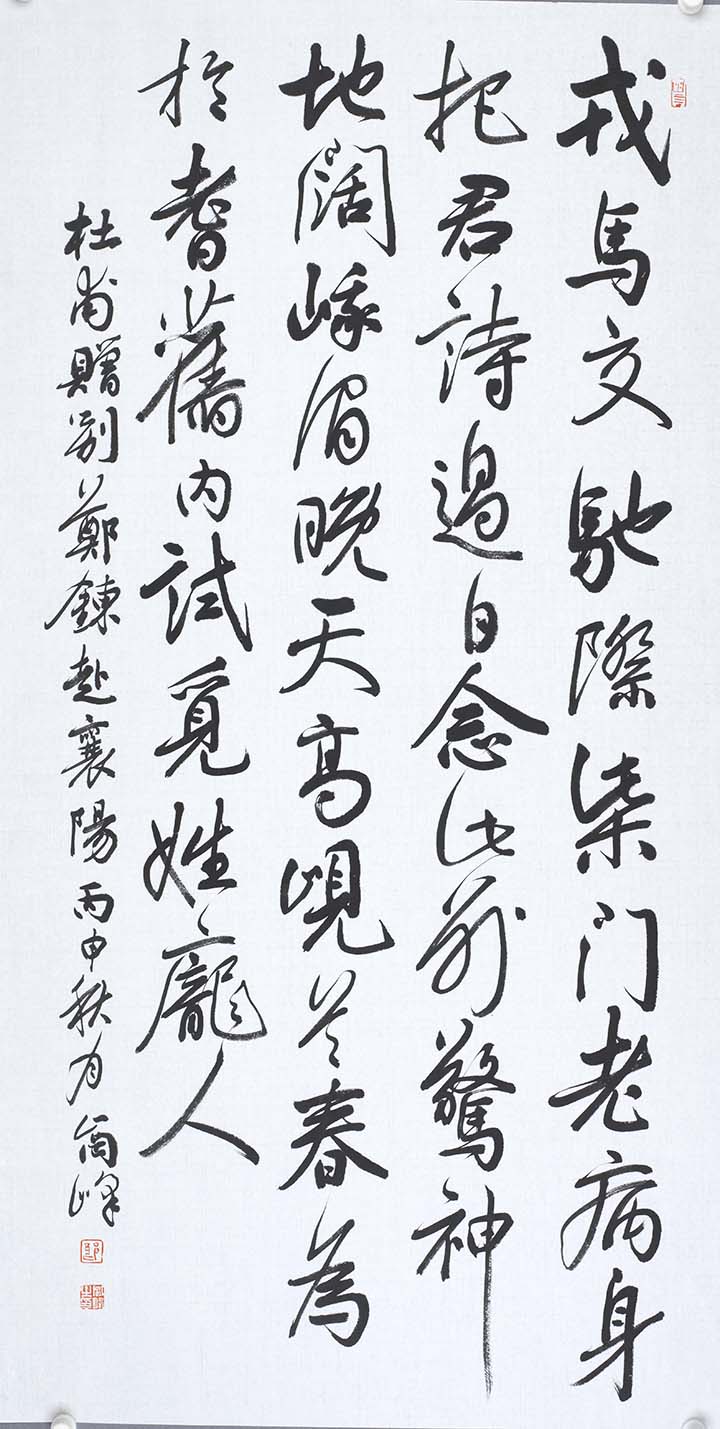 戎馬交馳際柴門老病身
把君詩過日念此別驚神
地闊峨眉晚天高峴首春為
於耆舊內試覓姓龐人
杜甫贈別鄭鍊赴襄陽丙申秋月峰